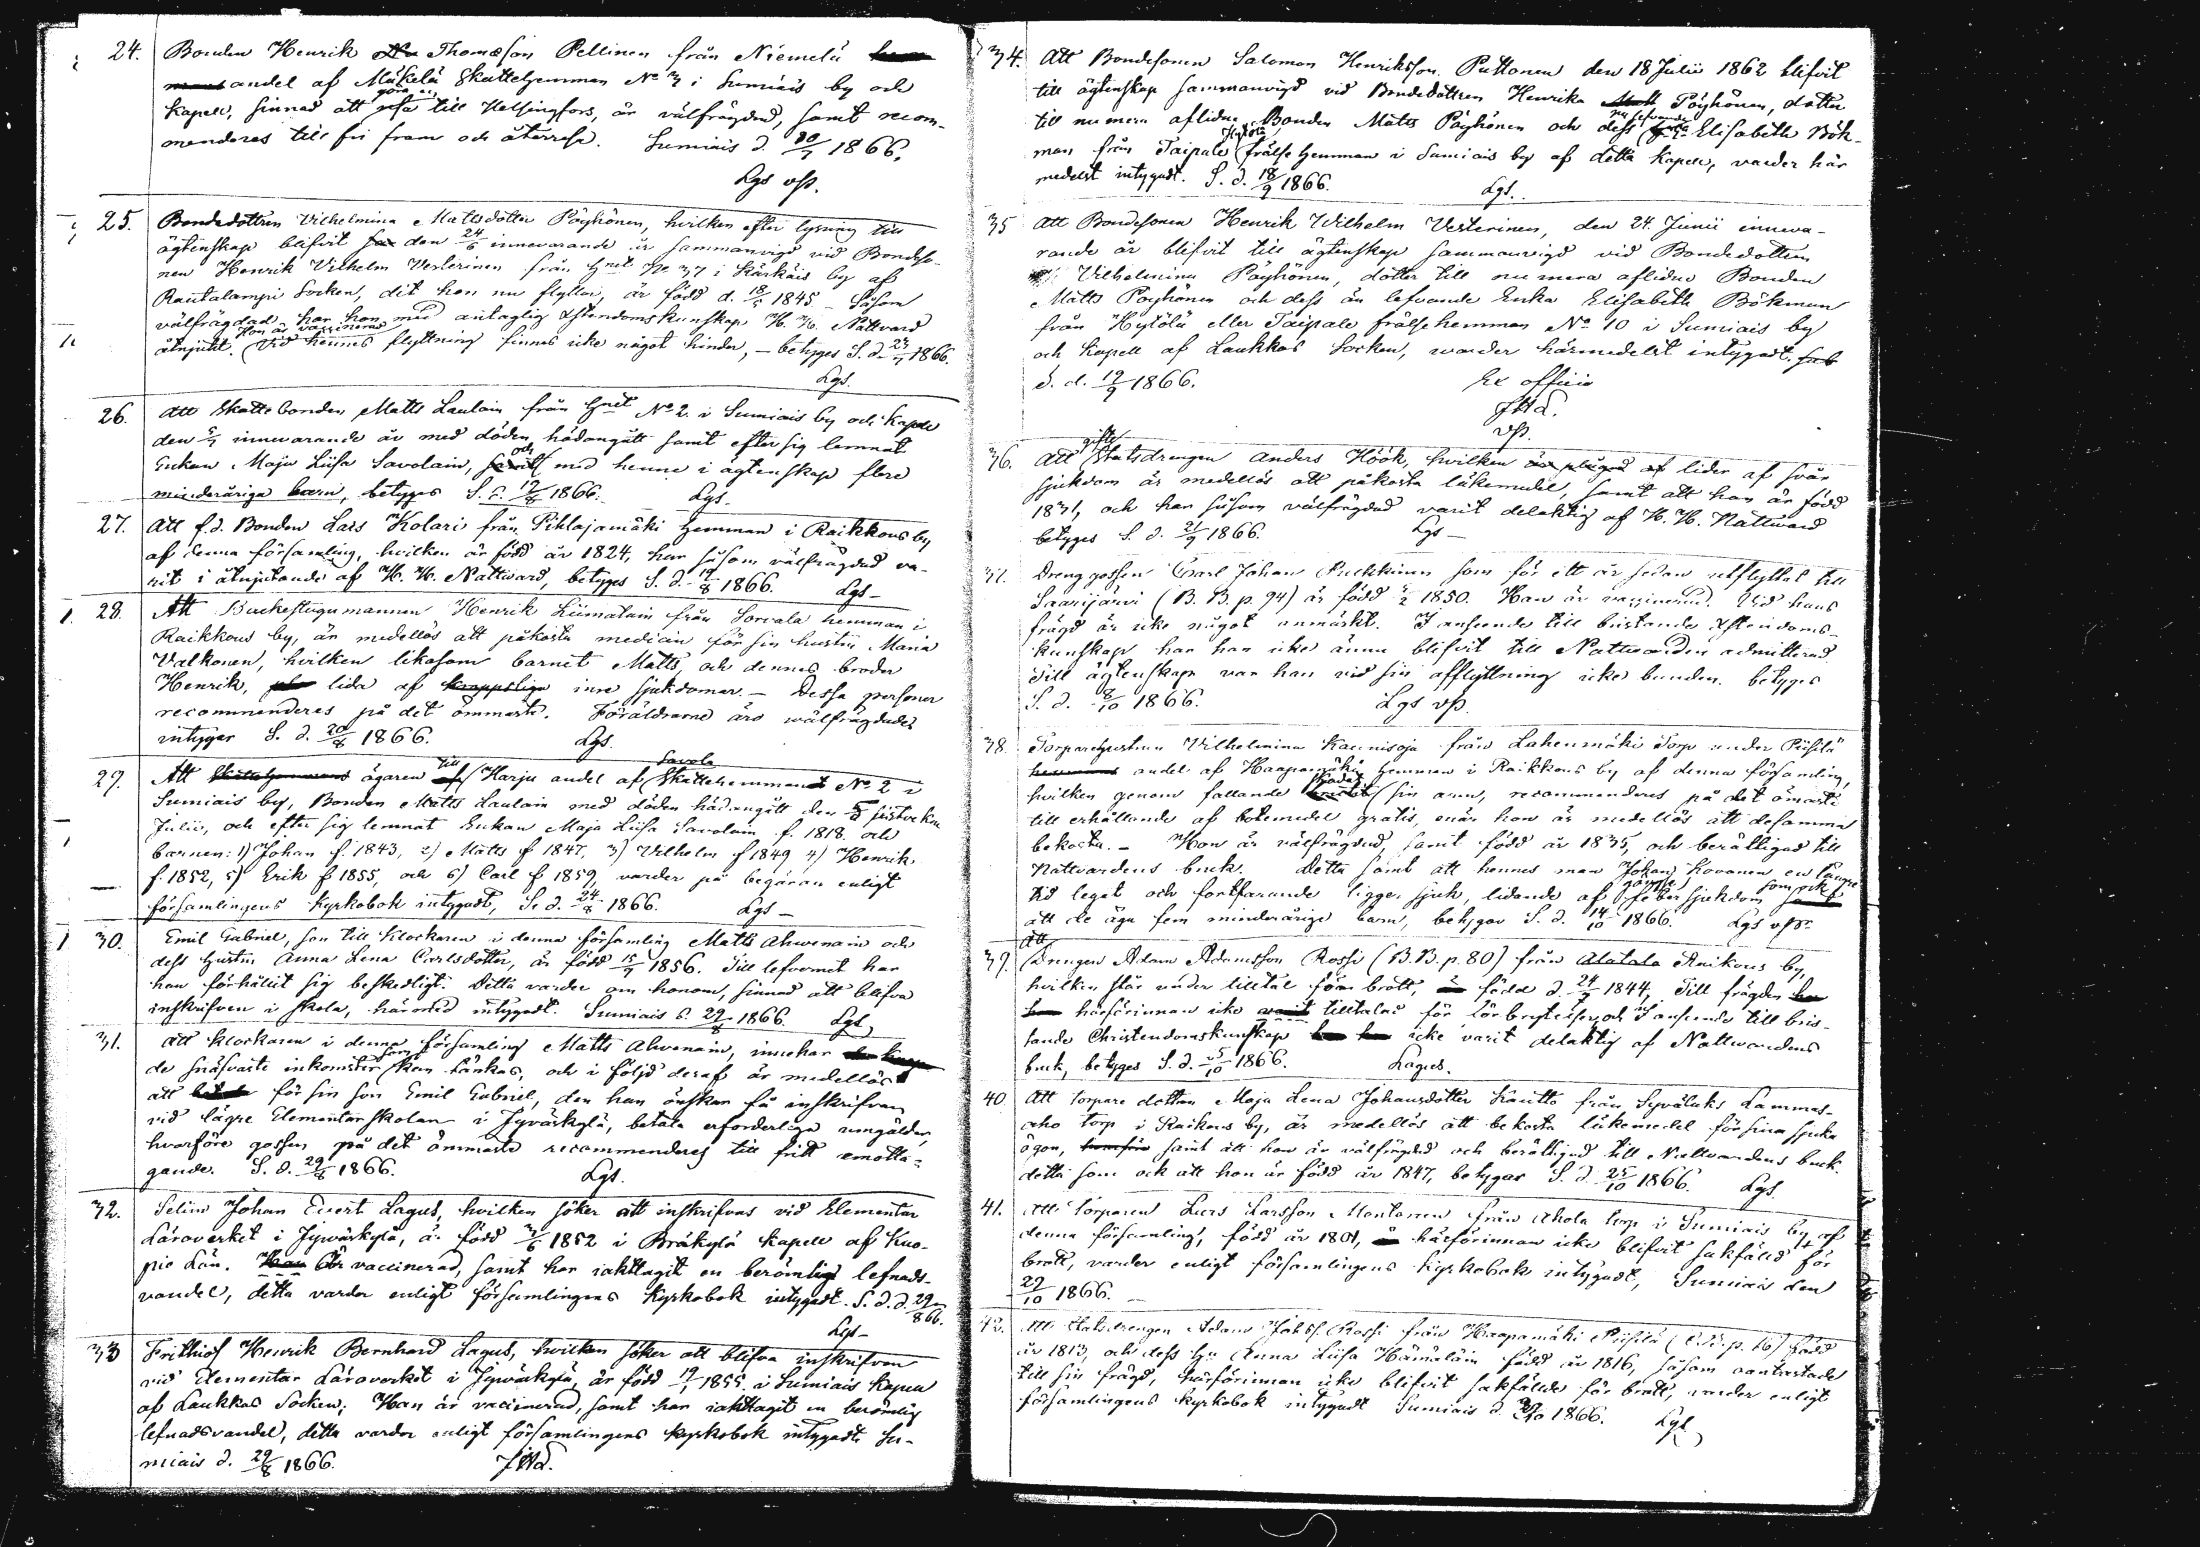 24. Bonden Henrik Thomasson Pellinen från Niemelä
andel af Mäkelä Skattehemman No 3 i Sumiais by och
Kapell, sinnad att göra en resa till Helsingfors, är välfrägdad, samt recom-
menderas till fri fram och återresa. Sumiais d. 20/7 1866.
Lgs vp.
25. Bondedottren Vilhelmina Mattsdotter Pöyhönen, hvilken efter lysning till
ägtenskap blifvit den 24/6 innevarande år sammanvigd vid Bondeso-
nen Henrik Vilhelm Vesterinen från Hnet No 37 i Kärkäis by af
Rautalampi Socken, dit hon nu flyttar, är född d. 18/5 1845 – Såsom
välfrägdad har hon med antaglig Xstendomskunskap H. H. Nattvard
åtnjutit. Hon är vaccinerad Vid hennes flyttning finnes icke något hinder, – betyges S. d. 23/7 1866.
Lgs.
26. Att Skattebonden Matts Laulain från Hnet No 2. i Sumiais by och Kapell
den 5/7 innevarande år med döden hädangått samt efter sig lemnat
Enkan Maja Liisa Savolain, och med henne i ägtenskap flere
minderåriga barn, betyges S. d. 19/8 1866. Lgs.
27. Att f.d. Bonden Lars Kolari från Pihlajamäki Hemman i Raikkous by
af denna församling, hvilken är född år 1824, har såsom välfrägdad va-
rit i åtnjutande af H. H. Nattward, betyges S. d. 19/8 1866. Lgs –
28. Att Backestugumannen Henrik Liimatain från Sorvala hemman i
Raikkous by, är medellös att påkosta medicin för sin hustru Maria
Valkonen, hvilken likasom barnet Matts, och dennes broder
Henrik, lida af inre sjukdomar. – Dessa personer
recommenderes på det ömmaste. Föräldrarne äro wälfrägdade,
intygar S. d. 20/8 1866. Lgs.
29. Att ägaren till Harju andel af Savola Skattehemman No 2 i
Sumiais by, Bonden Matts Laulain med döden hädangått den 5 sistvekne
Julii, och efter sig lemnat Enkan Maja Liisa Savolain f. 1818. och
barnen: 1) Johan f. 1843, 2) Matts f 1847, 3) Vilhelm f 1849 4) Henrik
f. 1852, 5) Erik f 1855, och 6) Carl f 1859, varder på begäran enligt
församlingens Kyrkobok intygadt, S. d. 24/8 1866. Lgs –
30. Emil Gabriel, son till Klockaren i denna församling Matts Ahwenain och
dess Hustru Anna Lena Carlsdotter, är född 15/9 1856. Till lefvernet har
han förhållit sig beskedligt. Detta varder om honom, sinnad att blifva
inskrifven i skola, härmed intygadt. Sumiais d. 29/8 1866. Lgs
31. Att Klockaren i denna församling Matts Ahvenain, innehar
de snäfvaste inkomster som kan tänkas, och i följd deraf är medellös
att för sin son Emil Gabriel, den han önskar få inskrifven
vid lägre Elementarskolan i Jyväskylä, betala erforderliga umgälder,
hvarföre gossen på det ömmaste recommenderes till fritt emotta-
gande. S. d. 29/8 1866. Lgs.
32. Selim Johan Evert Lagus, hvilken söker att inskrifvas vid Elementar
Läroverket i Jyväskylä, är född 3/6 1852 i Bräkylä Kapell af Kuo-
pio Län. Är vaccinerad, samt har iakttagit en berömlig lefnads-
vandel, detta varder enligt församlingens Kyrkobok intygadt. S. d. d. 29/8 66.
Lgs –
33 Frithiof Henrik Bernhard Lagus, hvilken söker att blifva inskrifven
vid Elementar Läroverket i Jyväskylä, är född 19/1 1855. i Sumiais Kapell
af Laukkas Socken; Han är vaccinerad, samt har iakttagit en berömlig
lefnadsvandel, detta varder enligt församlingens Kyrkobok intygadt. Su-
miais d. 29/8 1866.
34. Att Bondesonen Salomon Henriksson Puttonen den 18 Julii 1862 blifvit
till ägtenskap sammanvigd vid Bondedottren Henrika Pöyhönen, dotter
till numera aflidne Bonden Matts Pöyhönen och dess nu lefvande Elisabeth Bök-
man från Taipale Hytölä frälse Hemman i Sumiais by af detta Kapell, varder här
medelst intygadt. S. d. 18/9 1866. Lgs.
35 Att Bondesonen Henrik Wilhelm Vesterinen, den 24. Junii inneva-
rande år blifvit till ägtenskap sammanvigd vid Bondedottren
Vilhelmina Pöyhönen, dotter till numera aflidne Bonden
Matts Pöyhönen och dess än lefvande Enka Elisabeth Bökman
från Hytölä eller Taipale frälsehemman No 10 i Sumiais by
och Kapell af Laukkas Socken, warder härmedelst intygadt.
S. d. 19/9 1866. Ex officio
vp.
36. Att gifte Statsdrengen Anders Höök, hvilken lider af svår
sjukdom är medellös att påkosta läkemedel, samt att han är född
1831, och har såsom välfrägdad varit delaktig af H. H. Nattward
betyges S. d. 21/9 1866. Lgs –
37. Drenggossen Carl Johan Pulkkinen som för ett år sedan utflyttat till
Saarijärvi (B. B. p. 94) är född 1850. Han är vaccinerad. Vid hans
frägd är icke något anmärkt. I anseende till bristande Xstendoms-
kunskap har han icke ännu blifvit till Nattvarden admitterad
Till ägtenskap var han vid sin afflyttning icke bunden. betyges
S. d. 8/10 1866. Lgs vp.
38. Torparehustrun Vilhelmina Kaunisoja från Lahenmäki Torp under Piispilä
andel af Haapamäki Hemman i Raikkous by af denna församling,
hvilken genom fallande skadat sin arm, recommenderes på det ömaste
till erhållande af botemedel gratis, enär hon är medellös att desamma
bekosta. – Hon är välfrägdad, samt född år 1835, och berättigad till
Nattvardens bruk. Detta samt att hennes man Johan Kovanen en längre
tid legat och fortfarande ligger sjuk, lidande af feber sjukdom som ock
att de äga fem minderåriga barn, betygar S. d. 14/10 1866. Lgs vp.
39. Att Drengen Adam Adamsson Rossi (B.B. p. 80) från Alatalo Raikous by,
hvilken står under tilltal för brott, född d. 24/7 1844, Till frägden
härförinnan icke tilltalad för lörbrytelser, och i anseende till bris-
tande Christendomskunskap icke varit delaktig af Nattwardens
bruk, betyges S. d. 25/10 1866. Lagus.
40. Att Torpare dottren Maja Lena Johansdotter Kautto från Syväluks Lammas-
aho torp i Raikous by, är medellös att bekosta läkemedel för sina sjuka
ögon, samt att hon är välfrägdad och berättigad till Nattvardens bruk.
detta som ock att hon är född år 1847, betygar S. d. 25/10 1866. Lgs.
41. Att Torparen Lars Larsson Montonen från Ahola torp i Sumiais by af
denna församling, född år 1801, härförinnan icke blifvit sakfälld för
brott, varder enligt församlingens Kyrkobok intygadt, Sumiais den
29/10 1866.
42. Att Statsdrengen Adam Rossi från Haapamäki Piispilä född
år 1813, och dess Hu Anna Liisa Hämäläin född år 1816, såsom oantastade
till sin frägd, härförinnan icke blifvit sakfällde för brott, varder enligt
församlingens Kyrkobok intygadt Sumiais d. 1866. Lgs